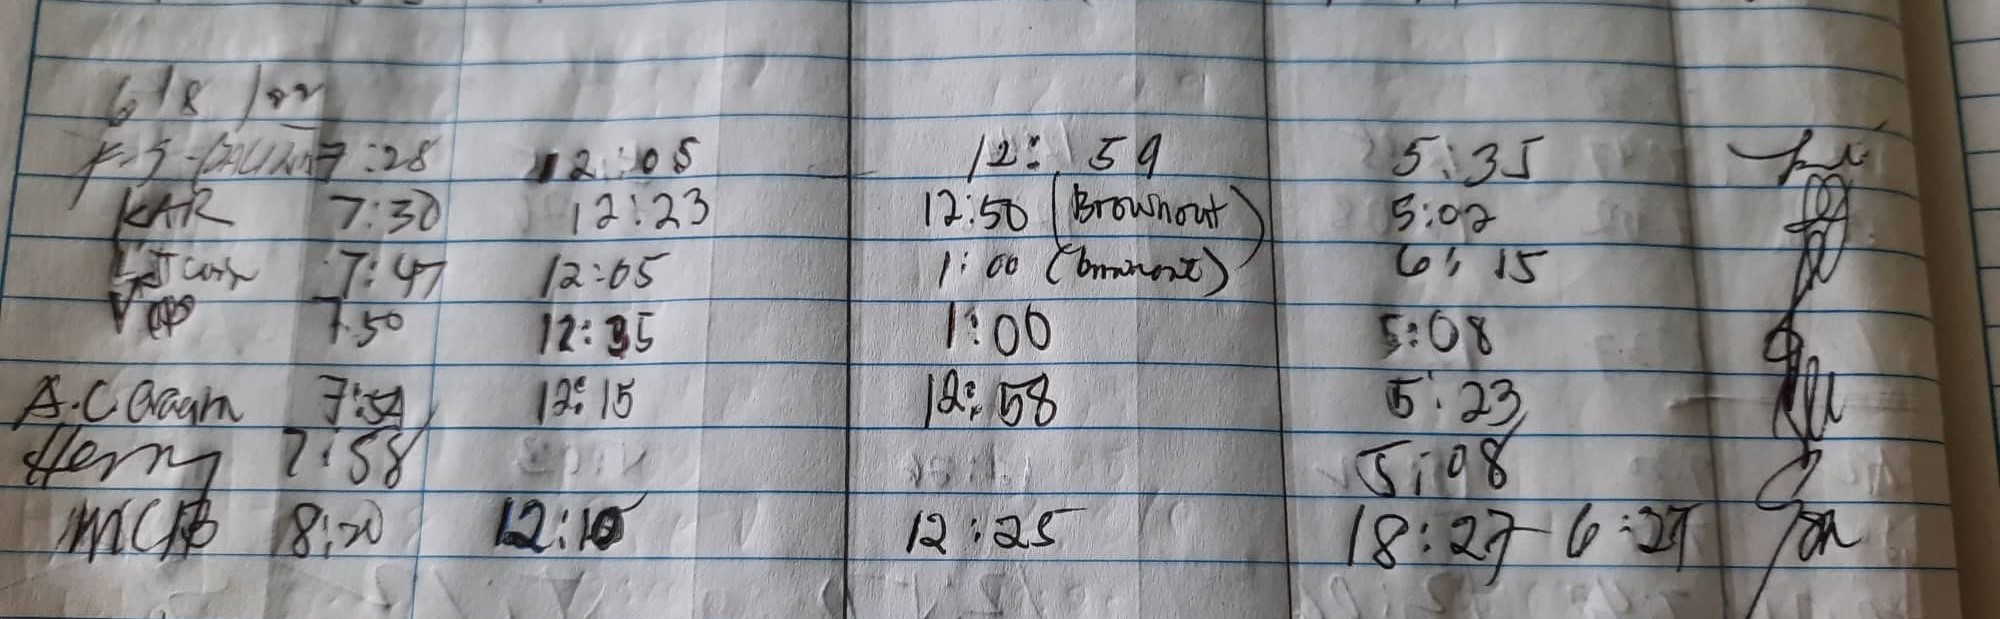 6/8/22
7:28 12:05 12:59 5:35
KAR 7:30 12:23 12:50 (Brownout) 5:02
7:47 12:05 1:00 (brownout) 6:15
7:50 12:35 1:00 5:08
A.C 12:15 12:58 5:23
Henry 7:58 5:08
8:20 12:10 12:25 18:27 - 6:27